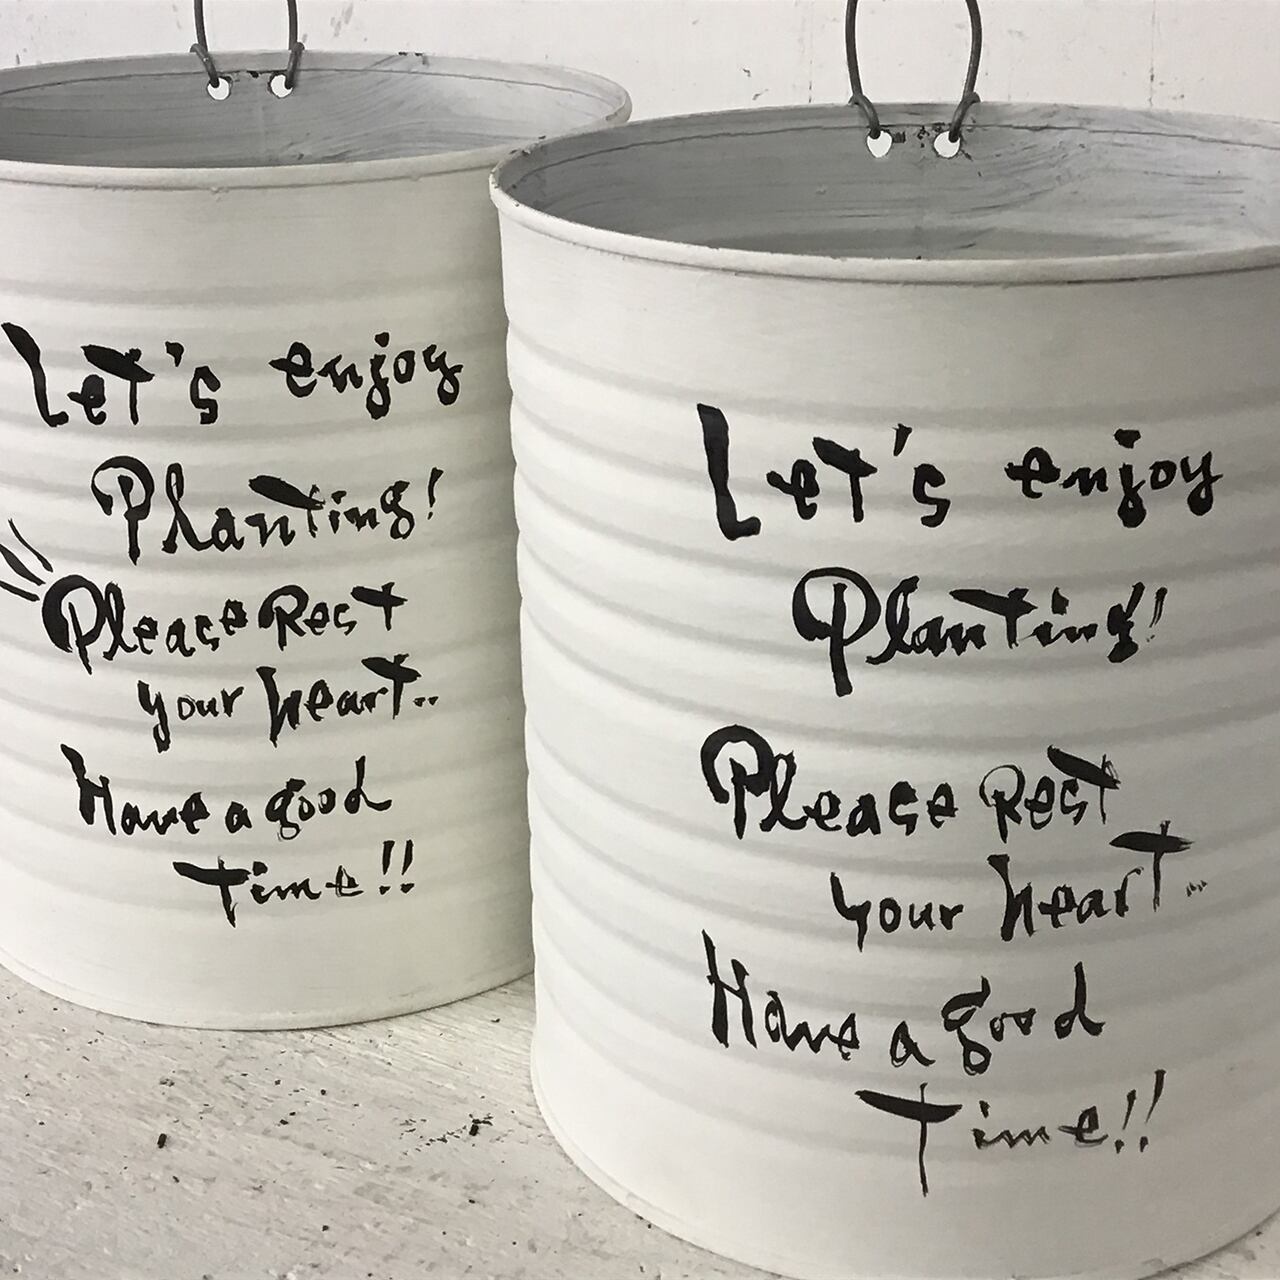 Let's enjoy
Planting!
Please Rest
your heart..
Have a good
Time!!
Let's enjoy
Planting!
Please Rest
your heart...
Have a good
Time!!